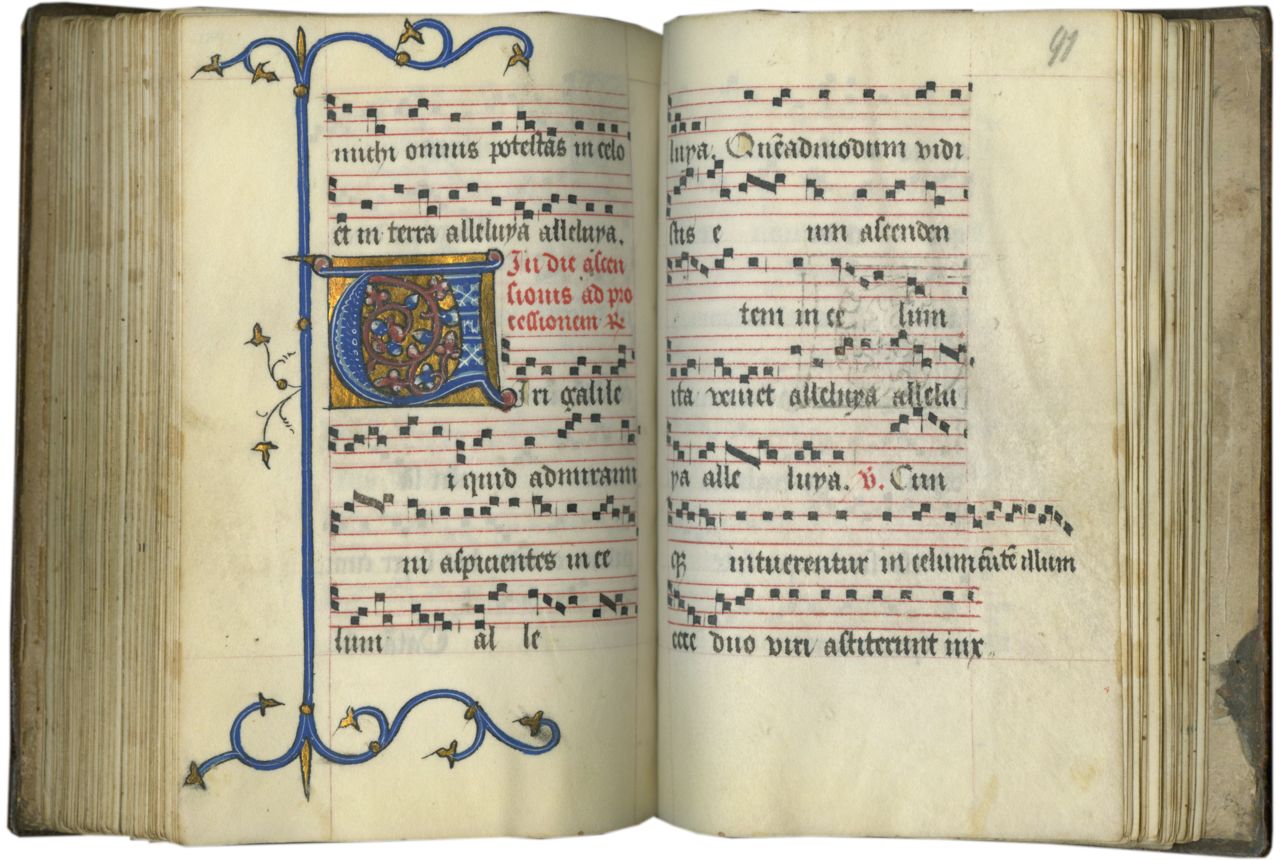 michi omnis potestas in celo
et in terra alleluya alleluya.
In die ascen
sionis ad pro
cessionem ℟
Viri galile
i quid admirami
ni aspicientes in ce
lum al le
91
luya. Quēadmodum vidi
stis e um ascenden
tem in ce lum
ita veniet alleluya allelu
ya alle luya. V. Cun
intuerentur in celum eūtē illum
ecce duo viri astiterunt iux